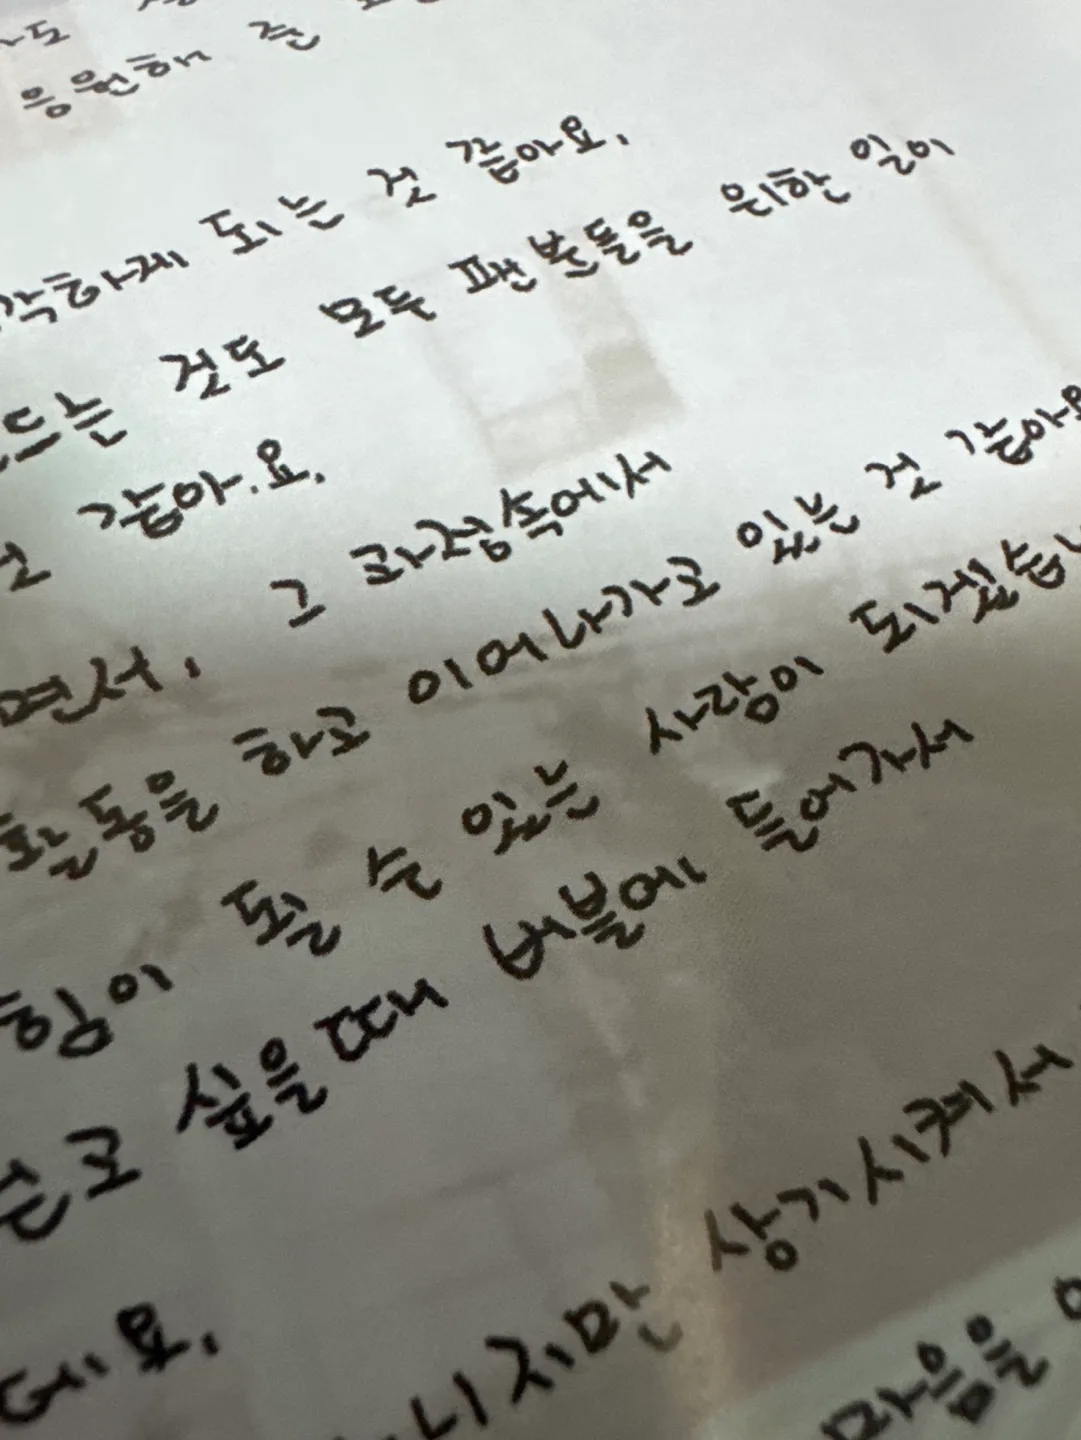 응원해 준
각하게 되는 것 같아요.
드는 것도 모두 팬분들을 위한 일이
같아요.
면서, 그 과정속에서
활동을 하고 이어나가고 있는 것 같아요
힘이 될 수 있는 사랑이 되겠습니
싶을때 버블에 들어가서
데요.
니지만 상기시켜서
마음을